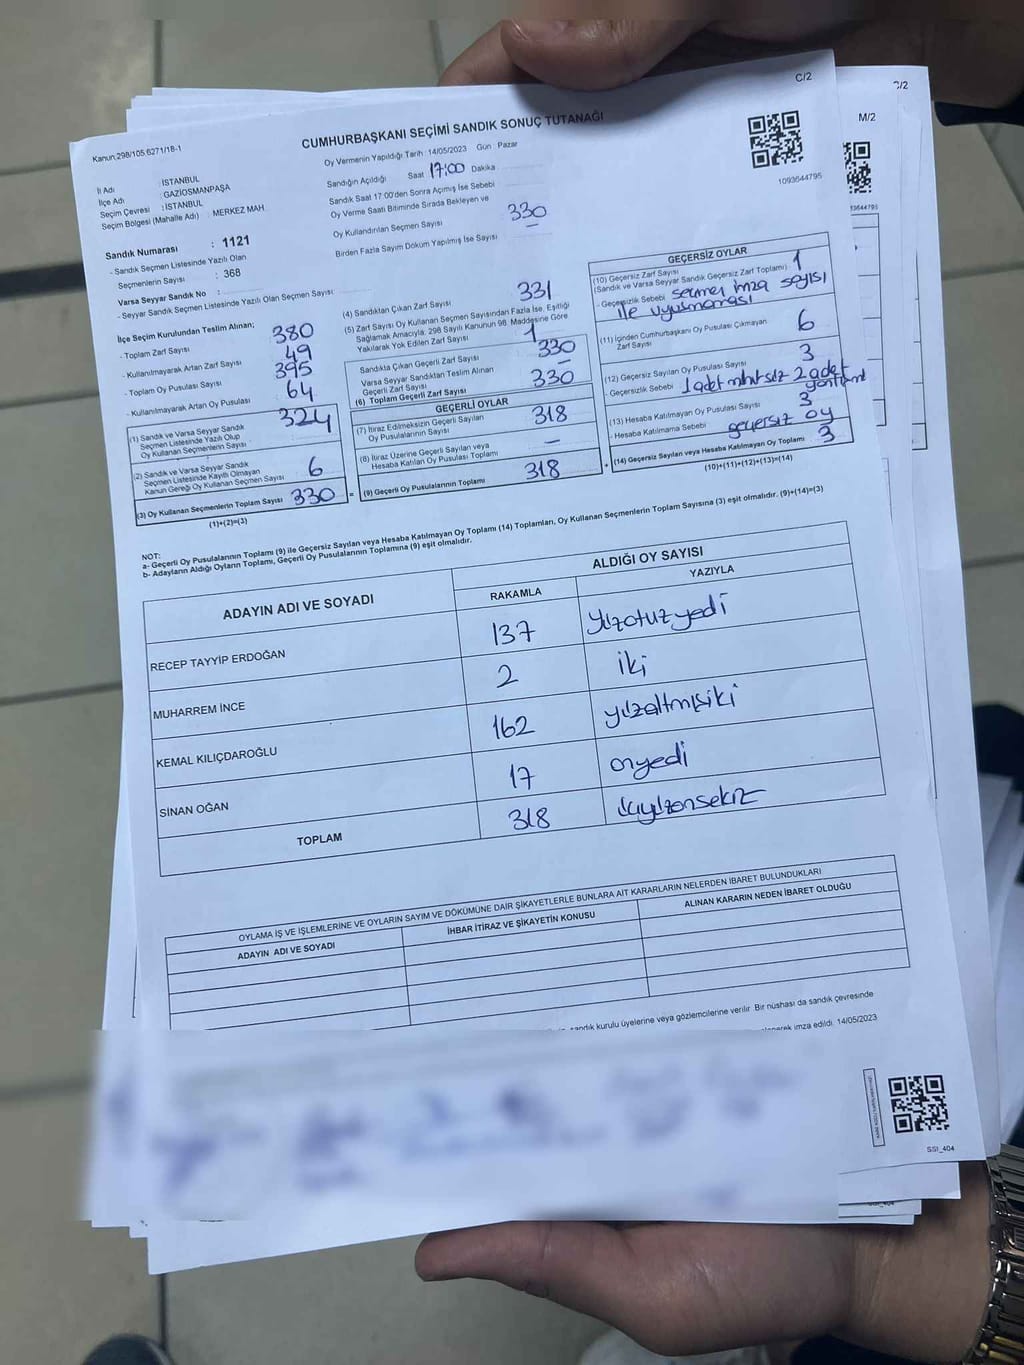 C/2
2/2
M/2
CUMHURBAŞKANI SEÇİMİ SANDIK SONUÇ TUTANAĞI
Kanun:298/105.6271/18-1
Oy Vermenin Yapıldığı Tarih : 14/05/2023 Gün Pazar
Sandığın Açıldığı Saat 17:00 Dakika
Sandık Saat 17:00'den Sonra Açmış İse Sebebi
Oy Verme Saati Bitiminde Sırada Bekleyen ve
Oy Kullandırılan Seçmen Sayısı 330
Birden Fazla Sayım Döküm Yapılmış İse Sayısı
1093644795
İl Adı : İSTANBUL
İlçe Adı : GAZİOSMANPAŞA
Seçim Çevresi : İSTANBUL
Seçim Bölgesi (Mahalle Adı) : MERKEZ MAH.
Sandık Numarası : 1121
- Sandık Seçmen Listesinde Yazılı Olan
Seçmenlerin Sayısı : 368
Varsa Seyyar Sandık No :
- Seyyar Sandık Seçmen Listesinde Yazılı Olan Seçmen Sayısı:
İlçe Seçim Kurulundan Teslim Alınan;
- Toplam Zarf Sayısı 380
- Kullanılmayarak Artan Zarf Sayısı 49
- Toplam Oy Pusulası Sayısı 395
- Kullanılmayarak Artan Oy Pusulası 64
(1) Sandık ve Varsa Seyyar Sandık
Seçmen Listesinde Yazılı Olup
Oy Kullanan Seçmenlerin Sayısı 324
(2) Sandık ve Varsa Seyyar Sandık
Seçmen Listesinde Kayıtlı Olmayan
Kanun Gereği Oy Kullanan Seçmen Sayısı 6
(3) Oy Kullanan Seçmenlerin Toplam Sayısı 330
(1)+(2)=(3)
(4) Sandıktan Çıkan Zarf Sayısı 331
(5) Zarf Sayısı Oy Kullanan Seçmen Sayısından Fazla İse, Eşitliği
Sağlamak Amacıyla, 298 Sayılı Kanunun 98. Maddesine Göre
Yakılarak Yok Edilen Zarf Sayısı 1
Sandıkta Çıkan Geçerli Zarf Sayısı 330
Varsa Seyyar Sandıktan Teslim Alınan
Geçerli Zarf Sayısı
(6) Toplam Geçerli Zarf Sayısı 330
GEÇERLİ OYLAR
(7) İtiraz Edilmeksizin Geçerli Sayılan
Oy Pusulalarının Sayısı 318
(8) İtiraz Üzerine Geçerli Sayılan veya
Hesaba Katılan Oy Pusulası Toplamı –
= (9) Geçerli Oy Pusulalarının Toplamı 318
GEÇERSİZ OYLAR
(10) Geçersiz Zarf Sayısı
(Sandık ve Varsa Seyyar Sandık Geçersiz Zarf Toplamı) 1
- Geçersizlik Sebebi seçmen imza sayısı
ile uyuşmaması
(11) İçinden Cumhurbaşkanı Oy Pusulası Çıkmayan
Zarf Sayısı 6
(12) Geçersiz Sayılan Oy Pusulası Sayısı 3
- Geçersizlik Sebebi 1 adet mühürsüz 2 adet
(13) Hesaba Katılmayan Oy Pusulası Sayısı 3
- Hesaba Katılmama Sebebi geçersiz oy
+ (14) Geçersiz Sayılan veya Hesaba Katılmayan Oy Toplamı 3
(10)+(11)+(12)+(13)=(14)
NOT:
a- Geçerli Oy Pusulalarının Toplamı (9) ile Geçersiz Sayılan veya Hesaba Katılmayan Oy Toplamı (14) Toplamları, Oy Kullanan Seçmenlerin Toplam Sayısına (3) eşit olmalıdır. (9)+(14)=(3)
b- Adayların Aldığı Oyların Toplamı, Geçerli Oy Pusulalarının Toplamına (9) eşit olmalıdır.
ADAYIN ADI VE SOYADI
ALDIĞI OY SAYISI
RAKAMLA YAZIYLA
RECEP TAYYİP ERDOĞAN 137 yüzotuzyedi
MUHARREM İNCE 2 iki
KEMAL KILIÇDAROĞLU 162 yüzaltmışiki
SİNAN OĞAN 17 onyedi
TOPLAM 318 üçyüzonsekiz
OYLAMA İŞ VE İŞLEMLERİNE VE OYLARIN SAYIM VE DÖKÜMÜNE DAİR ŞİKAYETLERLE BUNLARA AİT KARARLARIN NELERDEN İBARET BULUNDUKLARI
ADAYIN ADI VE SOYADI
İHBAR İTİRAZ VE ŞİKAYETİN KONUSU
ALINAN KARARIN NEDEN İBARET OLDUĞU
sandık kurulu üyelerine veya gözlemcilerine verilir. Bir nüshası da sandık çevresinde
imza edildi. 14/05/2023
SSI_404